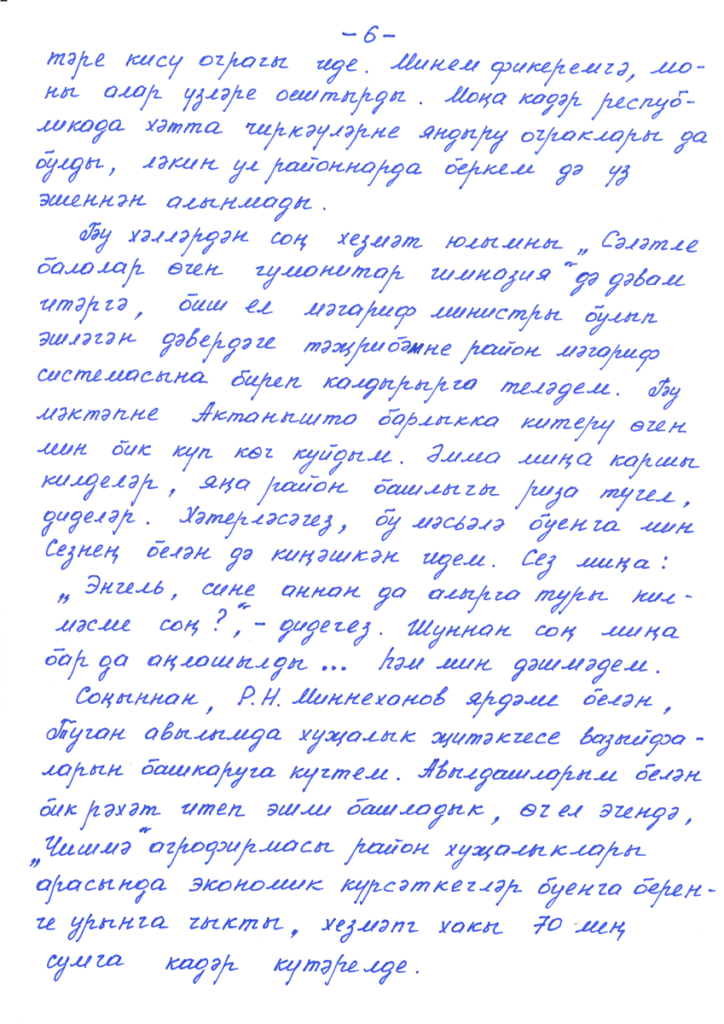 -6-
тәре кису очрагы иде. Минем фикеремчә, мо-
ны алар үзләре оештырды. Моңа кадәр респуб-
ликада хәтта чиркәүләрне яндыру очраклары да
булды, ләкин ул районнарда беркем дә үз
эшеннән алынмады.
Бу хәлләрдән соң хезмәт юлымны „Сәләтле
балалар өчен гуманитар гимназия“дә дәвам
итәргә, биш ел мәгариф министры булып
эшләгән дәвердәге тәҗрибәмне район мәгариф
системасына биреп калдырырга теләдем. Бу
мәктәпне Актанышта барлыкка китерү өчен
мин бик күп көч куйдым. Әмма миңа каршы
килделәр, яңа район башлыгы риза түгел,
диделәр. Хәтерләсәгез, бу мәсьәлә буенча мин
Сезнең белән дә киңәшкән идем. Сез миңа:
„Энгель, сине аннан да алырга туры кил-
мәсме соң?“, - дидегез. Шуннан соң миңа
бар да аңлашылды ... Һәм мин дәшмәдем.
Соңыннан, Р.Н. Миннеханов ярдәме белән,
Туган авылымда хуҗалык җитәкчесе вазыйфа-
ларын башкаруга күчтем. Авылдашларым белән
бик рәхәт итеп эшли башладык, өч ел эчендә,
„Чишмә“ агрофирмасы район хуҗалыклары
арасында экономик күрсәткечләр буенча берен-
че урынга чыкты, хезмәт хакы 70 мең
сумга кадәр күтәрелде.